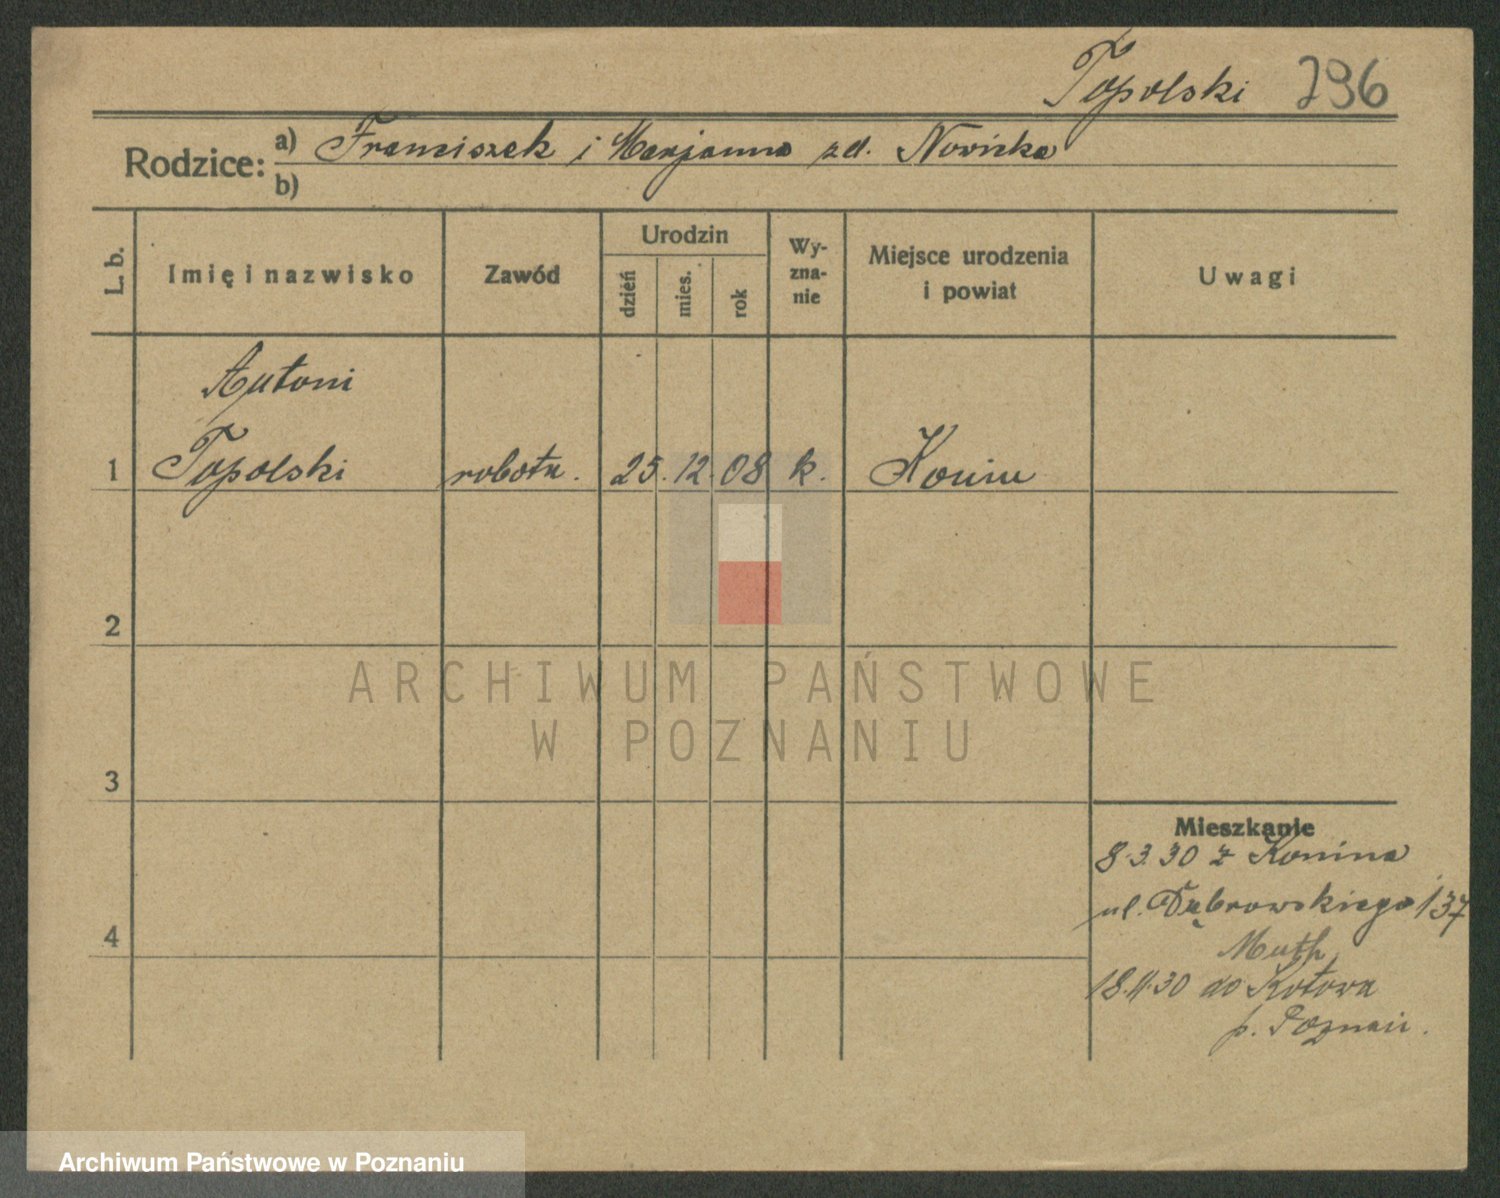 Topolski 296
Rodzice: a) Franciszek i Marjanna zd. Nowicka
b)
L. b.
Imię i nazwisko
Zawód
Urodzin
dzień
mies.
rok
Wy-
zna-
nie
Miejsce urodzenia
i powiat
Uwagi
Antoni
1 Topolski robotn. 25. 12. 08 k. Konin
2
3
4
Mieszkanie
8.3.30 z Konina
ul. Dąbrowskiego 137
Muth
18.11.30 do Kotowa
p. Poznań.
ARCHIWUM PAŃSTWOWE
W POZNANIU
Archiwum Państwowe w Poznaniu